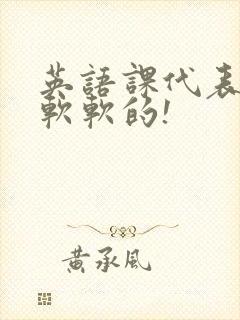 英語課代表
軟軟的!
黃承風